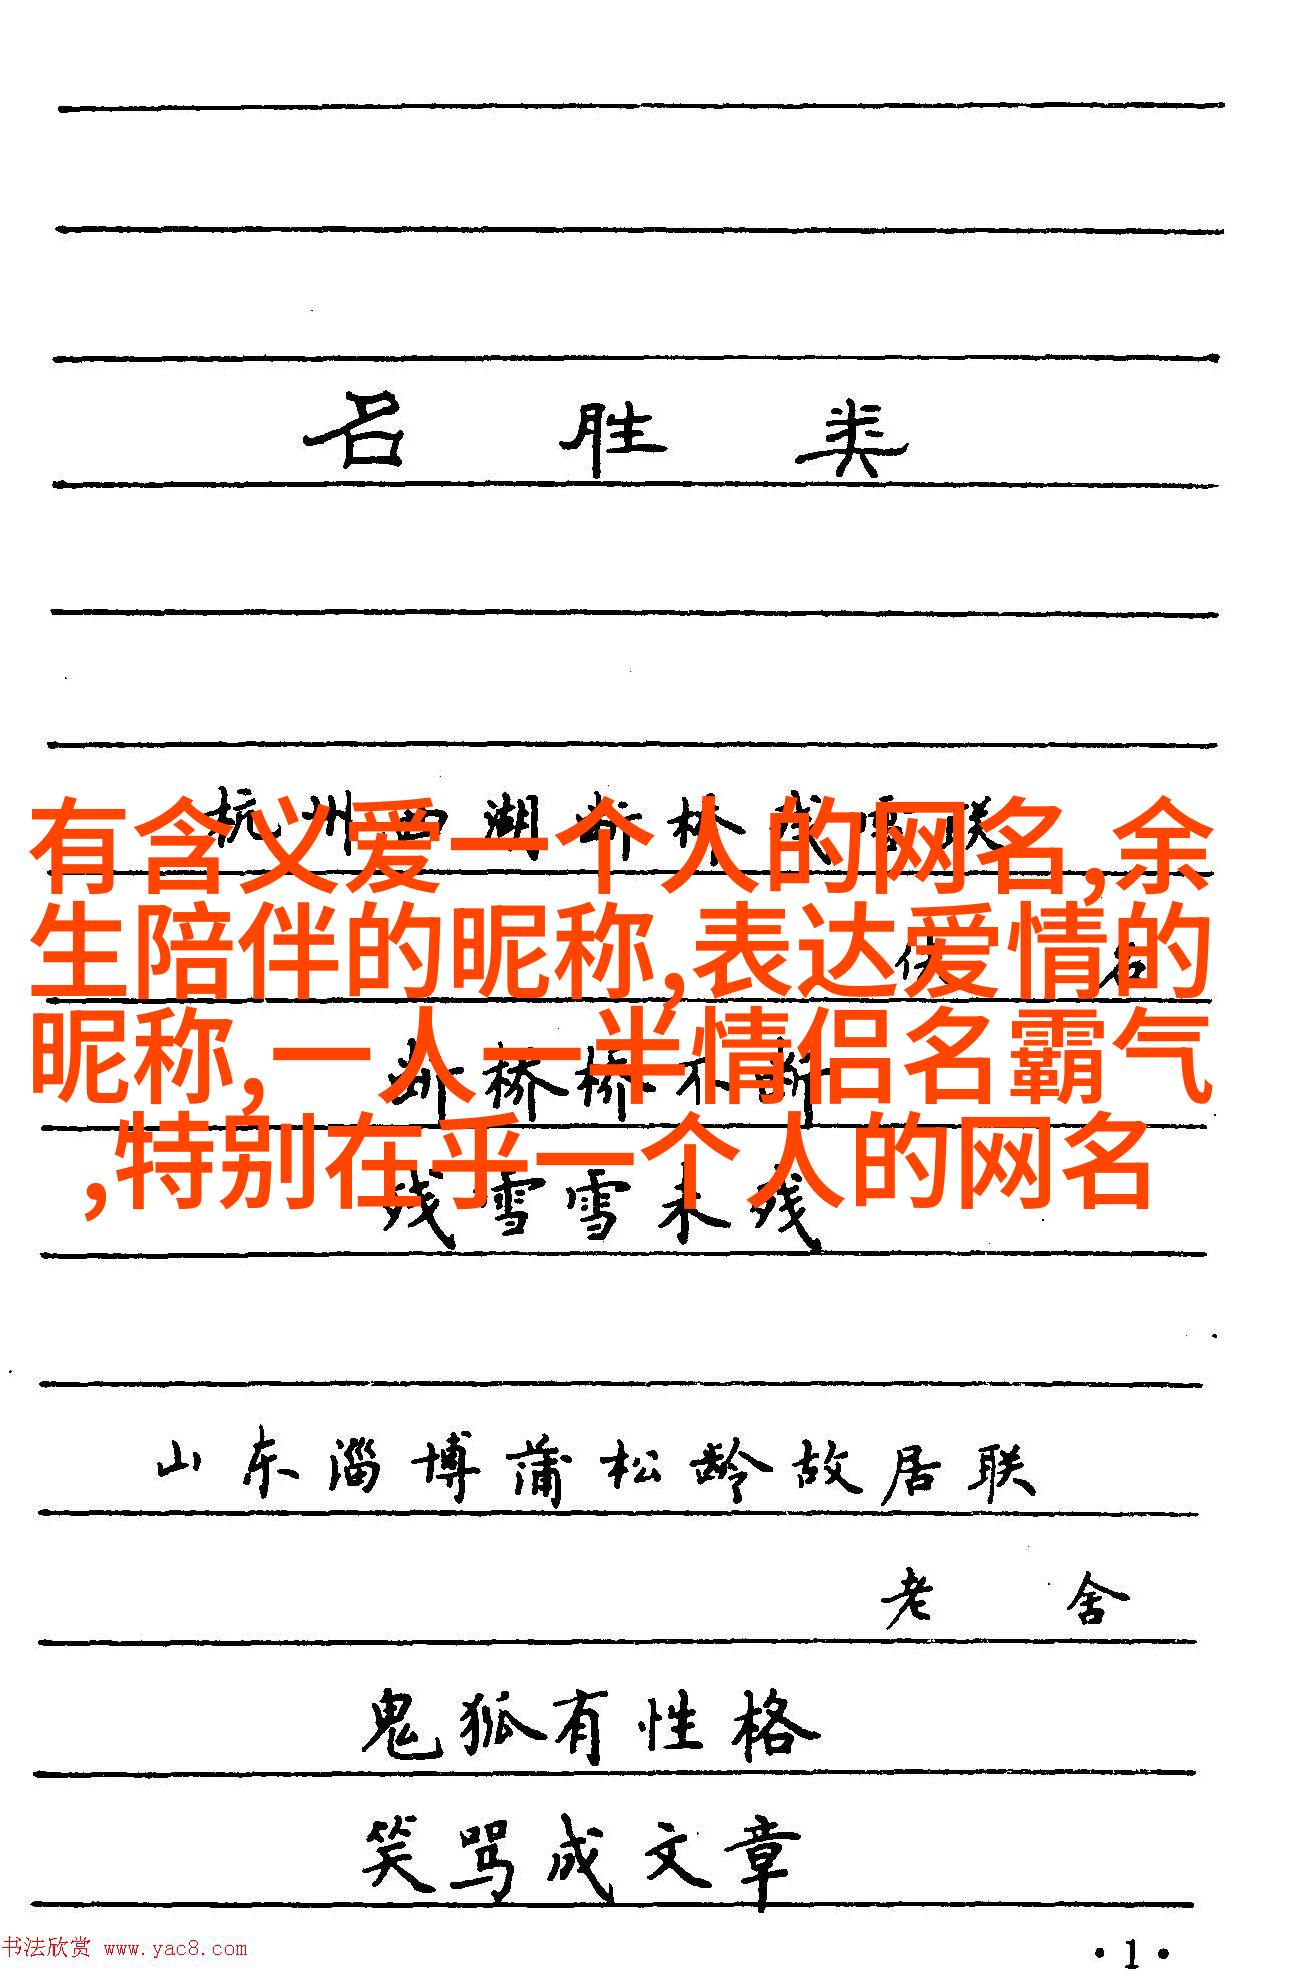 名胜类
杭州西湖断桥残雪联
佚名
断桥桥不断
残雪雪未残
有含义爱一个人的网名,余
生陪伴的昵称,表达爱情的
昵称,一人一半情侣名霸气
,特别在乎一个人的网名
山东淄博蒲松龄故居联
老舍
鬼狐有性格
笑骂成文章
书法欣赏 www.yac8.com
·1·